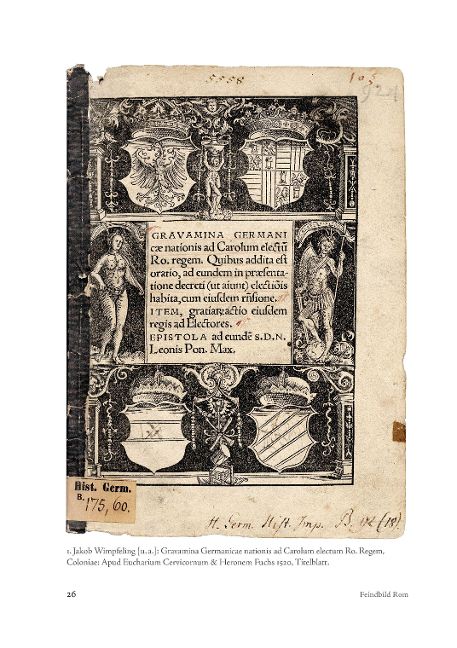 5558
105
924
GRAVAMINA GERMANI
cæ nationis ad Carolum electũ
Ro. regem. Quibus addita est
oratio, ad eundem in præsenta-
tione decreti (ut aiunt) electiõis
habita, cum eiusdem rñsione.
ITEM, gratiarꝝ actio eiusdem
regis ad Electores.
EPISTOLA ad eundẽ S.D.N.
Leonis Pon. Max.
Hist. Germ.
B. 175, 60.
H. Germ. Hist. Imp.
1. Jakob Wimpfeling [u. a.]: Gravamina Germanicae nationis ad Carolum electum Ro. Regem,
Coloniae: Apud Eucharium Cervicornum & Heronem Fuchs 1520, Titelblatt.
26
Feindbild Rom